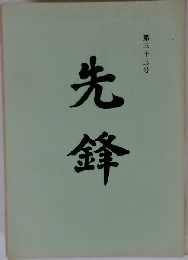 第三十三号
先鋒